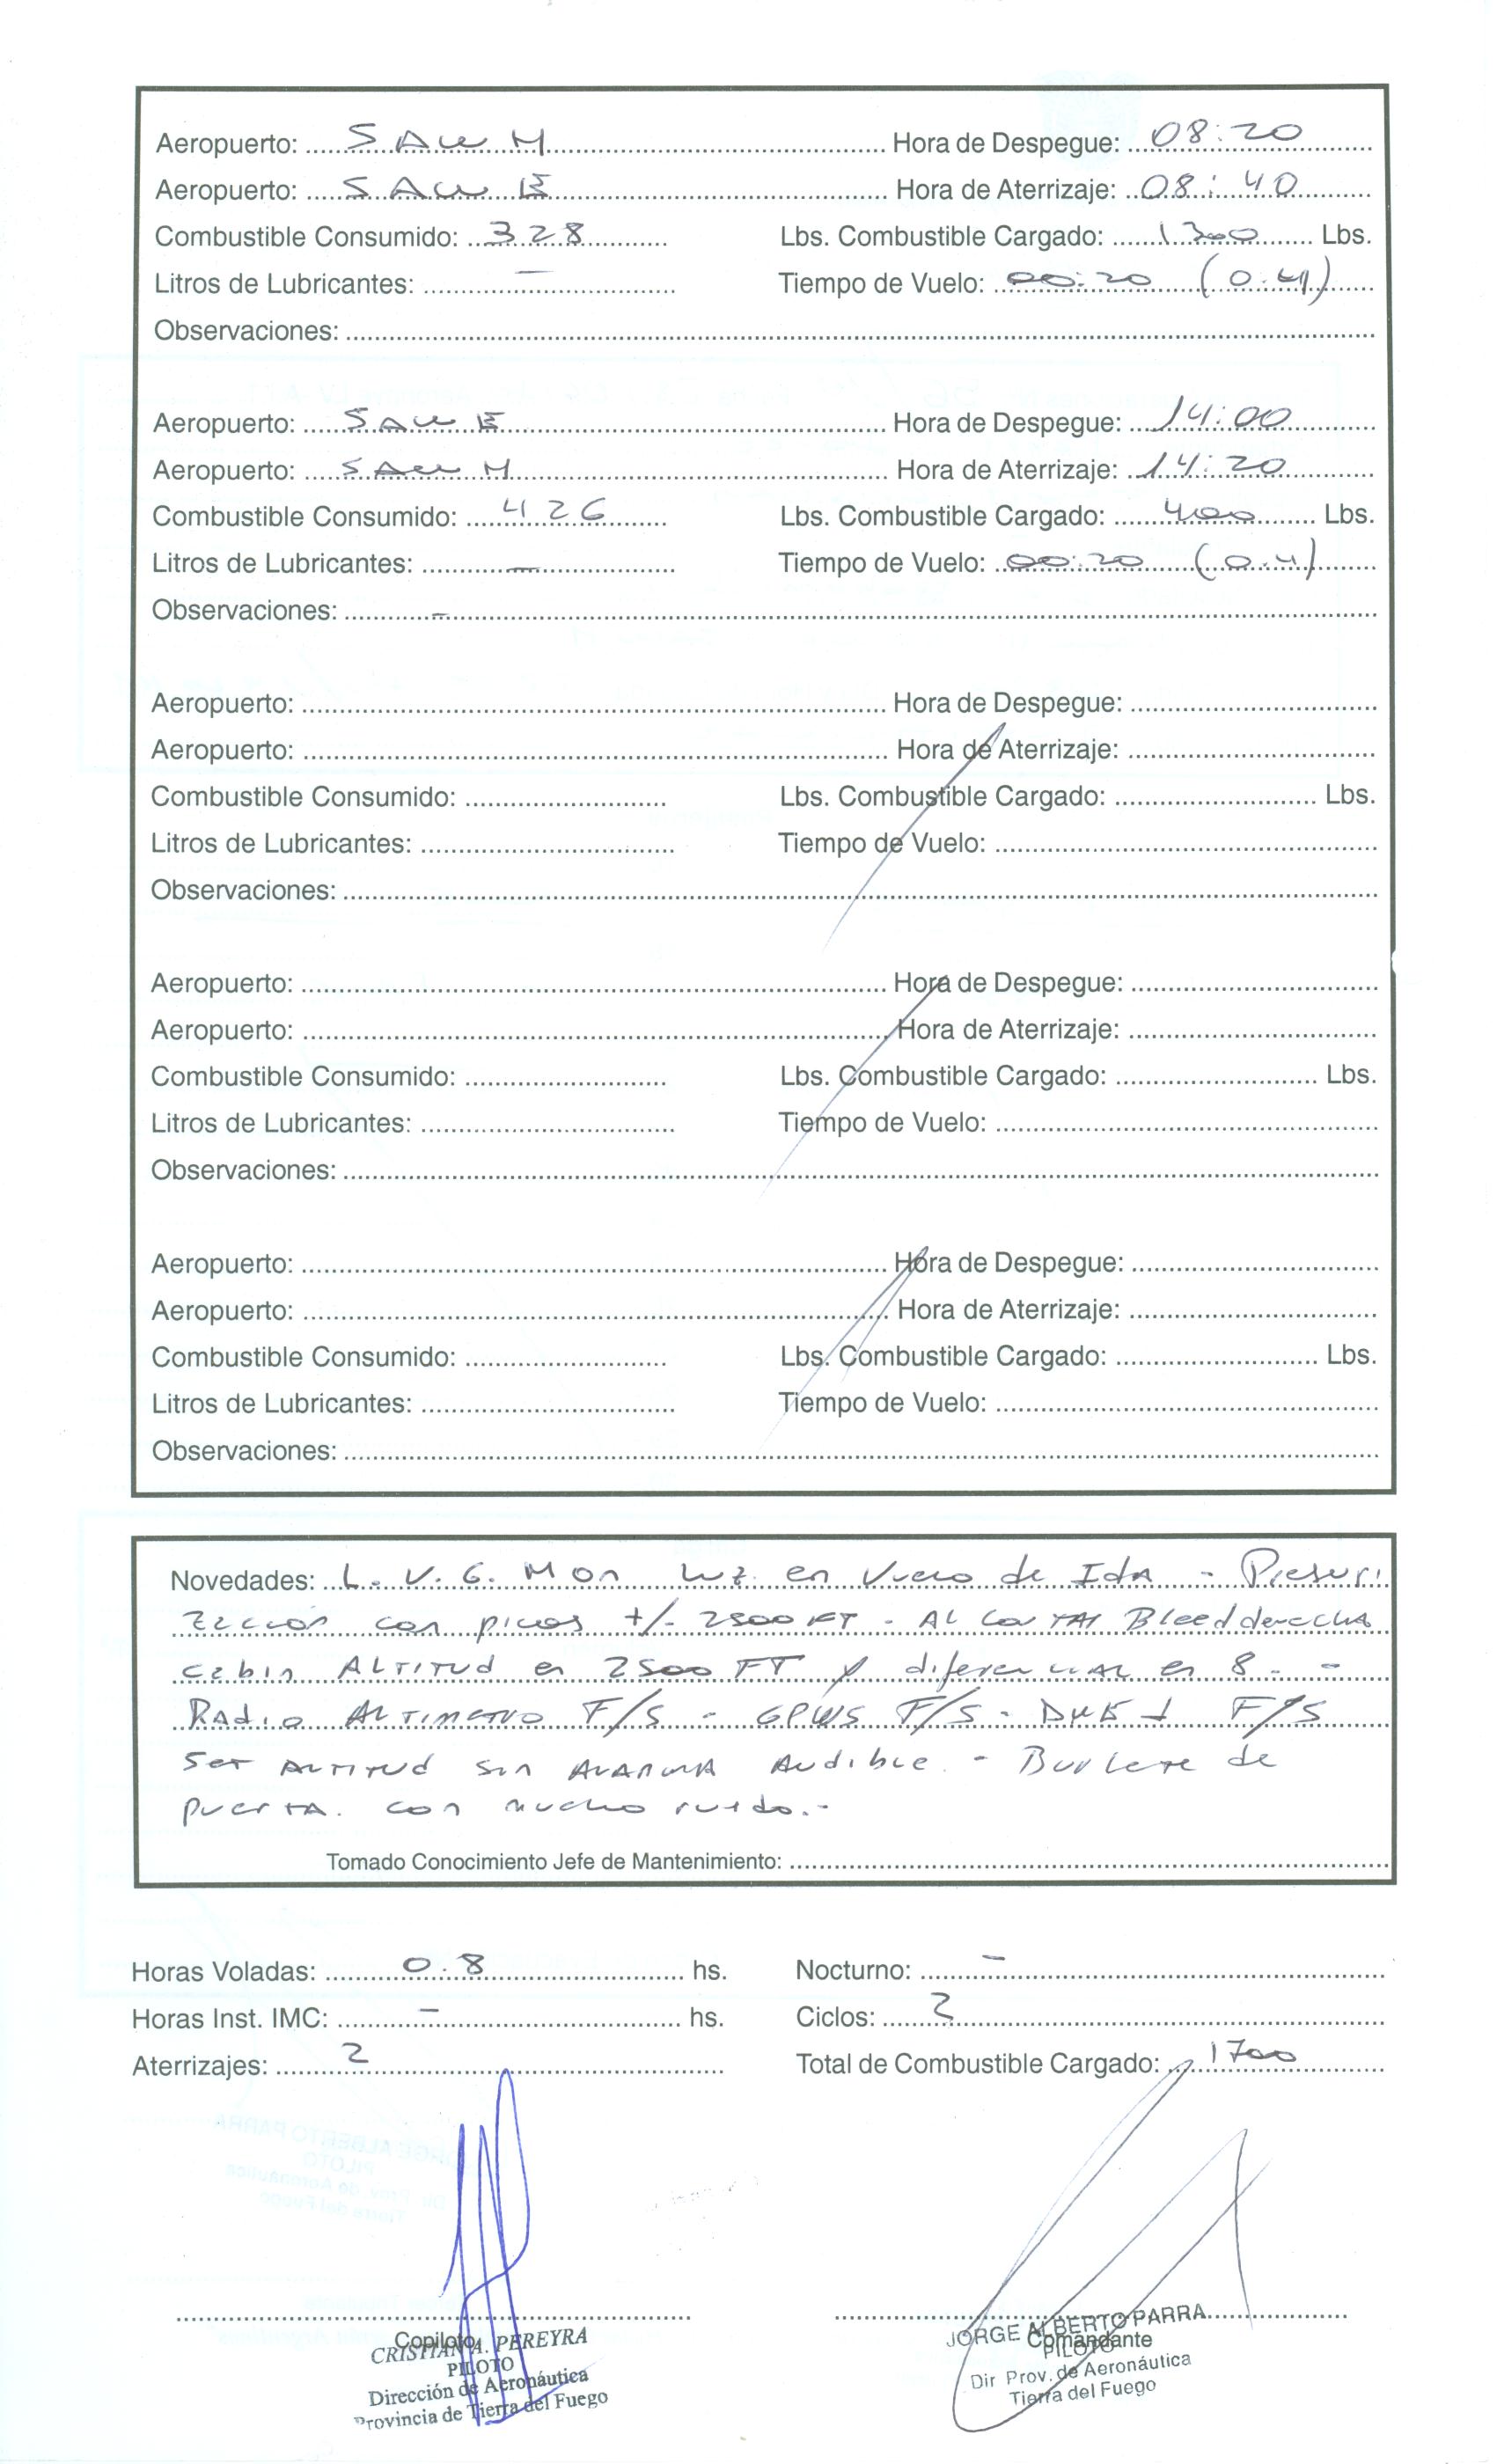 Aeropuerto: SAWH Hora de Despegue: 08:20
Aeropuerto: SAWE Hora de Aterrizaje: 08:40
Combustible Consumido: 328 Lbs. Combustible Cargado: 1300 Lbs.
Litros de Lubricantes: — Tiempo de Vuelo: 00:20 (0.4)
Observaciones:
Aeropuerto: SAWE Hora de Despegue: 14:00
Aeropuerto: SAWH Hora de Aterrizaje: 14:20
Combustible Consumido: 426 Lbs. Combustible Cargado: 400 Lbs.
Litros de Lubricantes: — Tiempo de Vuelo: 00:20 (0.4)
Observaciones: -
Aeropuerto: Hora de Despegue:
Aeropuerto: Hora de Aterrizaje:
Combustible Consumido: Lbs. Combustible Cargado: Lbs.
Litros de Lubricantes: Tiempo de Vuelo:
Observaciones:
Aeropuerto: Hora de Despegue:
Aeropuerto: Hora de Aterrizaje:
Combustible Consumido: Lbs. Combustible Cargado: Lbs.
Litros de Lubricantes: Tiempo de Vuelo:
Observaciones:
Aeropuerto: Hora de Despegue:
Aeropuerto: Hora de Aterrizaje:
Combustible Consumido: Lbs. Combustible Cargado: Lbs.
Litros de Lubricantes: Tiempo de Vuelo:
Observaciones:
Novedades: L.V.G. Mon luz en Vuelo de Ida - Presuri
zación con picos +/- 2500 FT - AL CORTAR Bleed derecha
cabin ALTITUD en 2500 FT y diferencial en 8.-
Radio ALTIMETRO F/S - GPWS F/S - DME 1 F/S
Set ALTITUD sin ALARMA Audible - Burlete de
puerta con mucho ruido.-
Tomado Conocimiento Jefe de Mantenimiento:
Horas Voladas: 0.8 hs. Nocturno: —
Horas Inst. IMC: — hs. Ciclos: 2
Aterrizajes: 2 Total de Combustible Cargado: 1700
Copiloto Comandante
CRISTIAN A. PEREYRA JORGE ALBERTO PARRA
PILOTO PILOTO
Dirección de Aeronáutica Dir Prov. de Aeronáutica
Provincia de Tierra del Fuego Tierra del Fuego